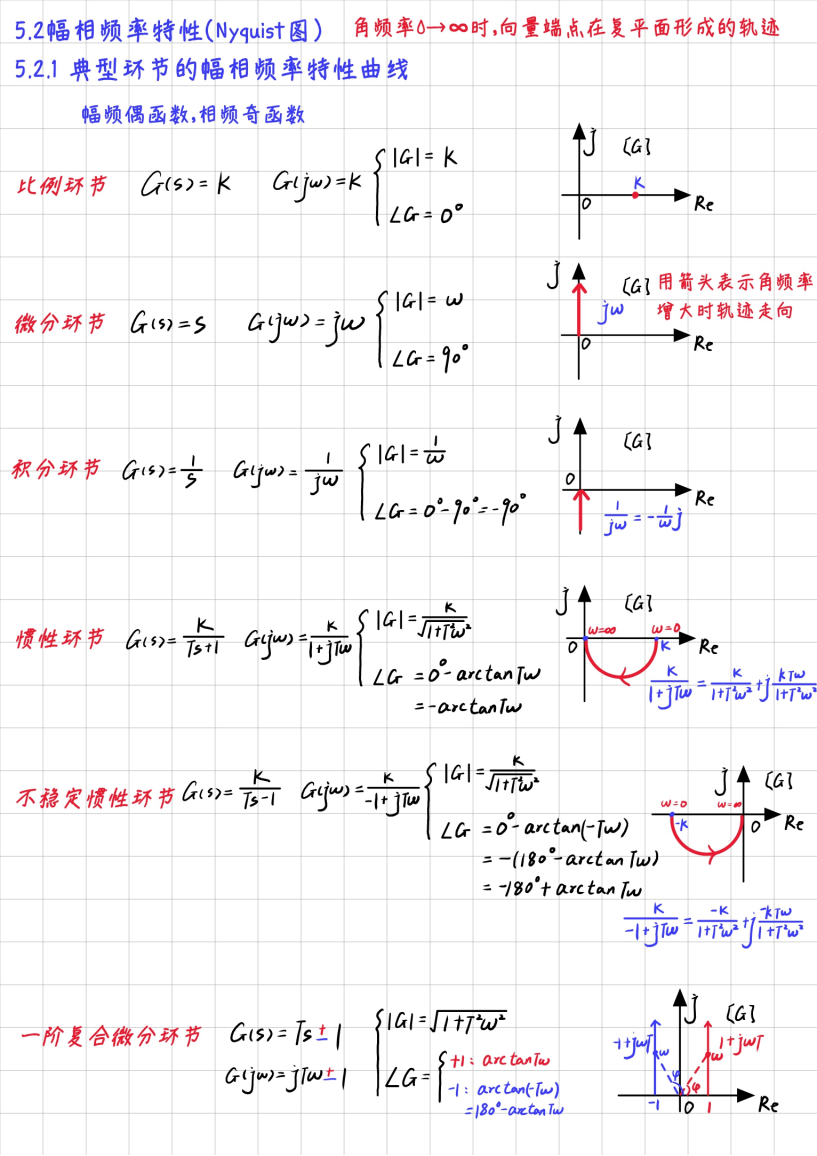 5.2幅相频率特性(Nyquist图) 角频率0→∞时,向量端点在复平面形成的轨迹
5.2.1 典型环节的幅相频率特性曲线
幅频偶函数,相频奇函数
比例环节 G(s)=K G(jω)=K { |G|=K
∠G=0°
j [G]
K
0 Re
微分环节 G(s)=S G(jω)=jω { |G|=ω
∠G=90°
j [G] 用箭头表示角频率
jω 增大时轨迹走向
0 Re
积分环节 G(s)=1/S G(jω)=1/jω { |G|=1/ω
∠G=0°-90°=-90°
j [G]
0 Re
1/jω=-1/ω j
惯性环节 G(s)=K/(Ts+1) G(jω)=K/(1+jTω) { |G|=K/√(1+T²ω²)
∠G=0°-arctanTω
=-arctanTω
j [G]
ω=∞ ω=0
0 K Re
K/(1+jTω)=K/(1+T²ω²)+j kTω/(1+T²ω²)
不稳定惯性环节 G(s)=K/(Ts-1) G(jω)=K/(-1+jTω) { |G|=K/√(1+T²ω²)
∠G=0°-arctan(-Tω)
=-(180°-arctanTω)
=-180°+arctanTω
j [G]
ω=0 ω=∞
-K 0 Re
K/(-1+jTω)=-K/(1+T²ω²)+j -kTω/(1+T²ω²)
一阶复合微分环节 G(s)=Ts±1 { |G|=√(1+T²ω²)
G(jω)=jTω±1 ∠G= { +1: arctanTω
-1: arctan(-Tω)
=180°-arctanTω
j [G]
-1+jωT 1+jωT
ω ω
φ φ
-1 0 1 Re